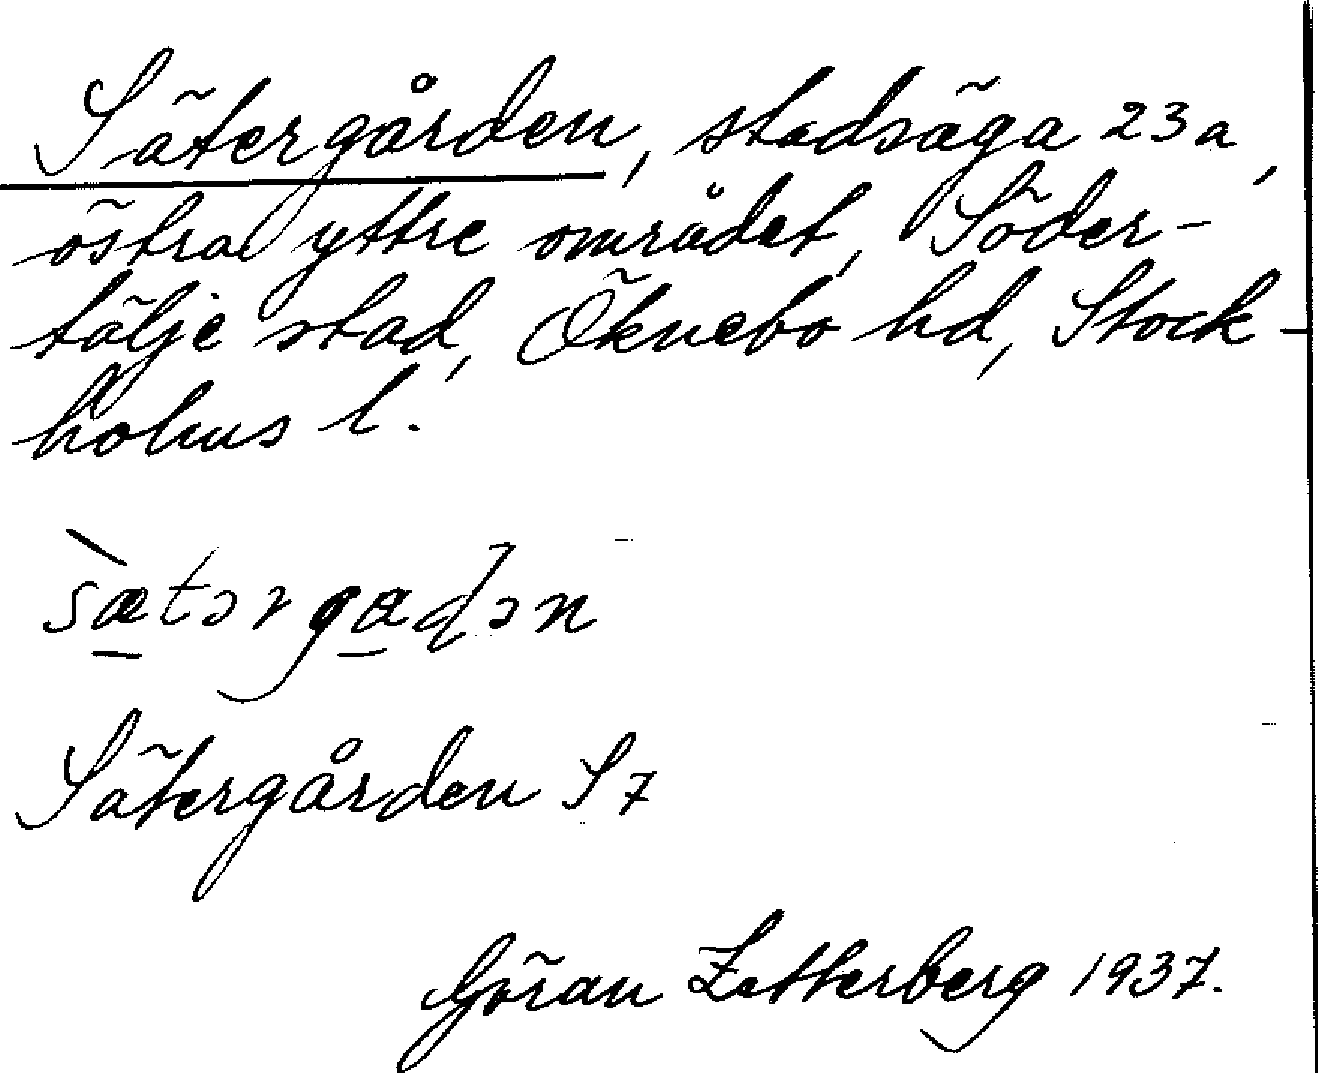 Sätergården, stadsäga 23a,
östra yttre området, Söder-
tälje stad, Öknebo hd, Stock-
holms l.
sætərgaɖən
Sätergården S7
Göran Zetterberg 1937.